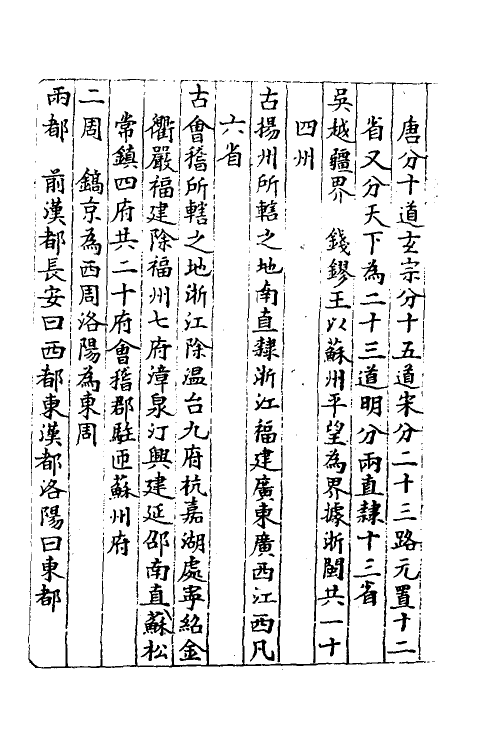 唐分十道玄宗分十五道宋分二十三路元置十二
省又分天下為二十三道明分兩直隸十三省
吳越疆界 錢鏐王以蘇州平望為界據浙閩共一十
四州
古揚州所轄之地南直隸浙江福建廣東廣西江西凡
六省
古會稽所轄之地浙江除温台九府杭嘉湖處寧紹金
衢嚴福建除福州七府漳泉汀興建延邵南直蘇松
常鎮四府共二十府會稽郡駐匝蘇州府
二周 鎬京為西周洛陽為東周
兩都 前漢都長安曰西都東漢都洛陽曰東都